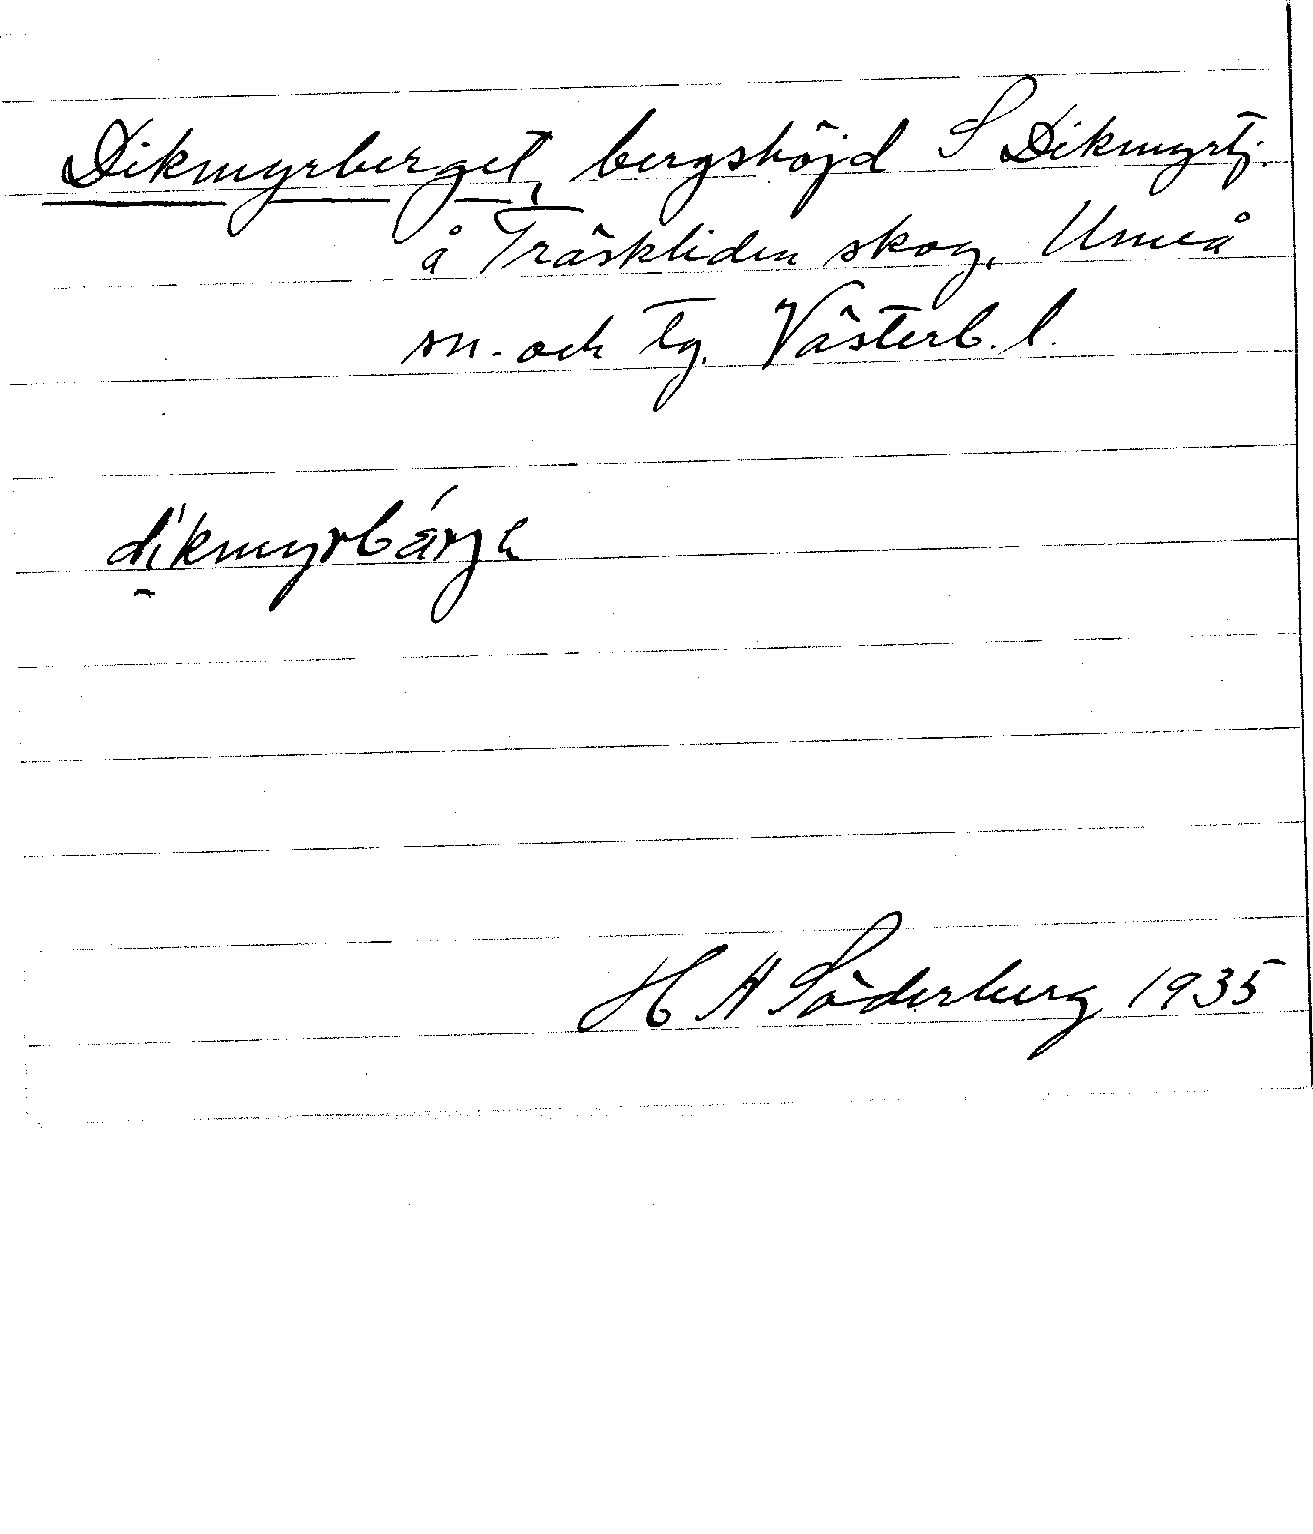 Dikmyrberget, bergshöjd S Dikmyrtj.
å Träskliden skog, Umeå
sn. och tg. Västerb. l.
dikmyrbärjə
H A Söderberg 1935